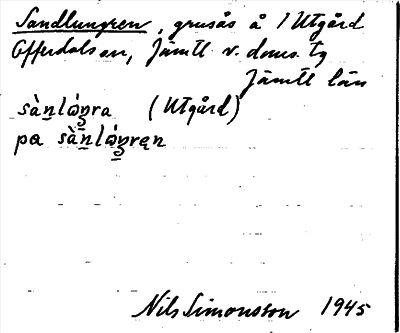 Sandlungren, grusås å 1 Utgård
Offerdals sn, Jämtl. v. doms. tg
Jämtl län
sàn̲lώŋra (Utgård)
pa sàn̲lώŋrąn
Nils Simonsson 1945